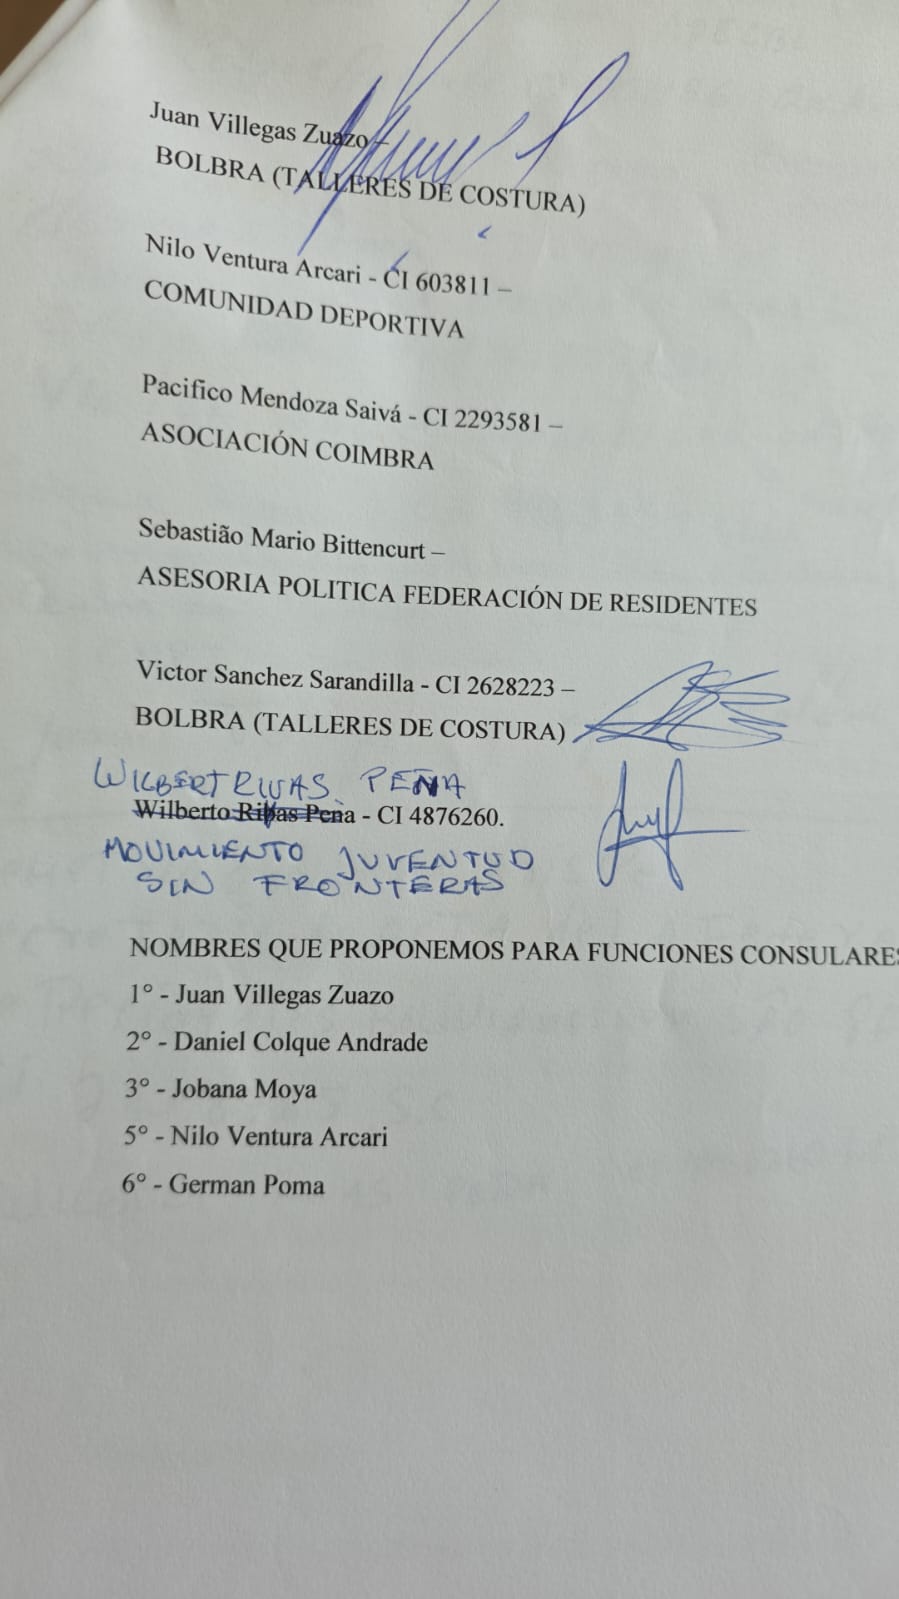 Juan Villegas Zuazo –
BOLBRA (TALLERES DE COSTURA)
Nilo Ventura Arcari - CI 603811 –
COMUNIDAD DEPORTIVA
Pacifico Mendoza Saivá - CI 2293581 –
ASOCIACIÓN COIMBRA
Sebastião Mario Bittencurt –
ASESORIA POLITICA FEDERACIÓN DE RESIDENTES
Victor Sanchez Sarandilla - CI 2628223 –
BOLBRA (TALLERES DE COSTURA)
WILBERT RIVAS PEÑA
Wilberto Ribas Pena - CI 4876260.
MOVIMIENTO JUVENTUD
SIN FRONTERAS
NOMBRES QUE PROPONEMOS PARA FUNCIONES CONSULARES
1° - Juan Villegas Zuazo
2° - Daniel Colque Andrade
3° - Jobana Moya
5° - Nilo Ventura Arcari
6° - German Poma